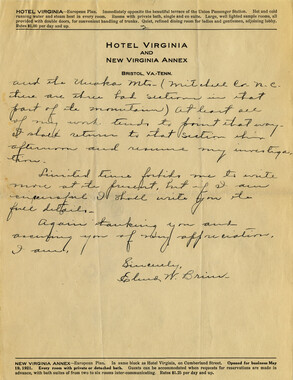 HOTEL VIRGINIA—European Plan. Immediately opposite the beautiful terrace of the Union Passenger Station. Hot and cold
running water and steam heat in every room. Rooms with private bath, single and en suite. Large, well lighted sample rooms, all
provided with double doors, for convenient handling of trunks. Quiet, refined dining room for ladies and gentlemen, adjoining lobby.
Rates $1.50 per day and up.
HOTEL VIRGINIA
AND
NEW VIRGINIA ANNEX
BRISTOL, VA.-TENN.
and the Unaka Mts. (Mitchell Co. N.C.
there are three bad sections in that
part of the mountains) At least all
of my work tends to point that way.
I shall return to that section this
afternoon and resume my investiga-
tion.
Limited time forbids me to write
more at the present, but if I am
successful I shall write you the
full details.
Again thanking you and
assuring you of my appreciation,
I am,
Sincerely,
W. Brim
NEW VIRGINIA ANNEX—European Plan. In same block as Hotel Virginia, on Cumberland Street. Opened for business May
19, 1921. Every room with private or detached bath. Guests can be accommodated when requests for reservations are made in
advance, with bath suites of from two to six rooms inter-communicating. Rates $1.25 per day and up.